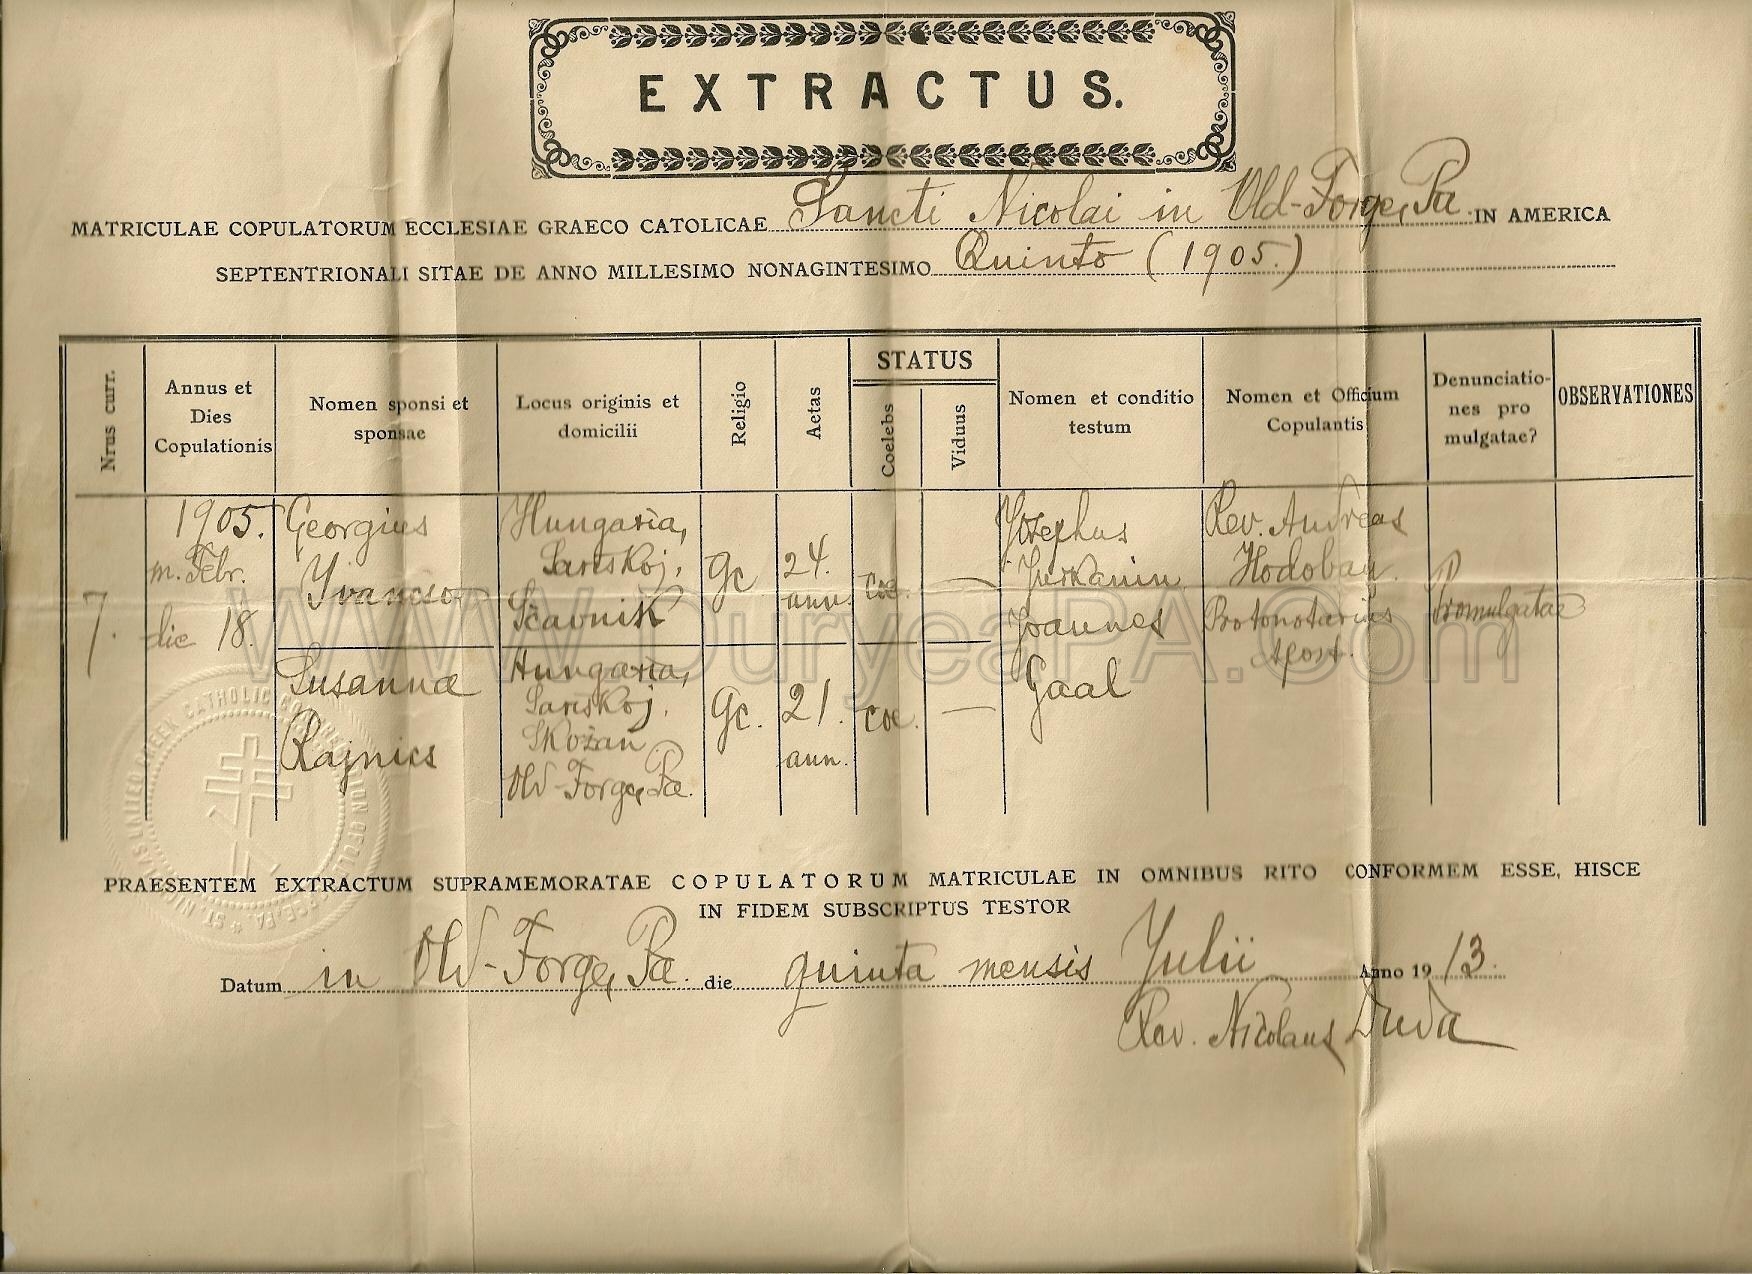 EXTRACTUS.
MATRICULAE COPULATORUM ECCLESIAE GRAECO CATOLICAE Sancti Nicolai in Old-Forge, Pa. IN AMERICA
SEPTENTRIONALI SITAE DE ANNO MILLESIMO NONAGINTESIMO Quinto (1905.)
Nrus curr.
Annus et
Dies
Copulationis
Nomen sponsi et
sponsae
Locus originis et
domicilii
Religio
Aetas
STATUS
Coelebs
Viduus
Nomen et conditio
testum
Nomen et Officium
Copulantis
Denunciatio-
nes pro
mulgatae?
OBSERVATIONES
7.
1905.
m. Febr.
die 18.
Georgius
Yvancso
Hungaria,
Sarišskoj,
Ščavnik
gc
24.
ann.
coe.
—
Josephus
Jurkanin
Joannes
Gaal
Rev. Andreas
Hodobay.
Protonotarius
Apost.
Promulgatae
Susanna
Rajnics
Hungaria,
Sarišskoj,
Skožan
Old-Forge, Pa.
gc.
21.
ann.
coe.
—
WWW.DuryeaPA.com
PRAESENTEM EXTRACTUM SUPRAMEMORATAE COPULATORUM MATRICULAE IN OMNIBUS RITO CONFORMEM ESSE, HISCE
IN FIDEM SUBSCRIPTUS TESTOR
Datum in Old-Forge, Pa. die quinta mensis Julii Anno 1913.
Rev. Nicolaus Duda